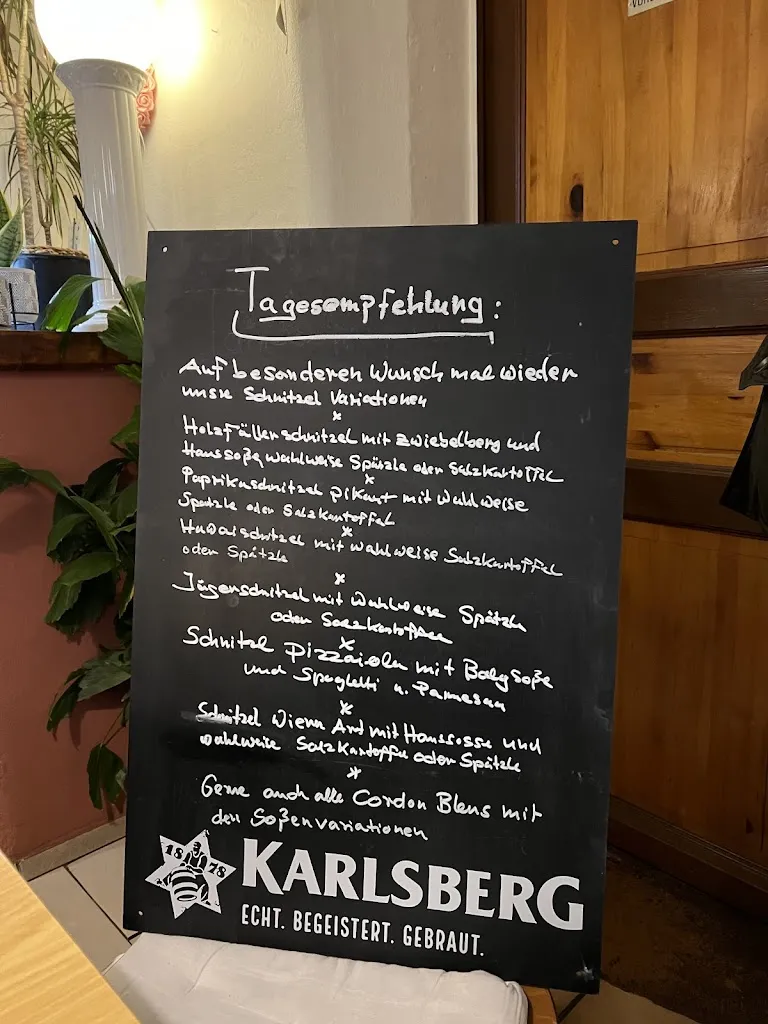 Tagesempfehlung:
Auf besonderen Wunsch mal wieder
unsre Schnitzel Variationen
x
Holzfällerschnitzel mit Zwiebelberg und
Haussoße, wahlweise Spätzle oder Salzkartoffel
x
Paprikaschnitzel pikant mit wahlweise
Spätzle oder Salzkartoffel
x
Hawaischnitzel mit wahlweise Salzkartoffel
oder Spätzle
x
Jägerschnitzel mit wahlweise Spätzle
oder Salzkartoffel
x
Schnitzel Pizzaiola mit Bolysoße
und Spaghetti u. Parmesan
x
Schnitzel Wiener Art mit Haussosse und
wahlweise Salzkartoffel oder Spätzle
x
Gerne auch alle Cordon Bleus mit
den Soßenvariationen
1878 KARLSBERG
ECHT. BEGEISTERT. GEBRAUT.